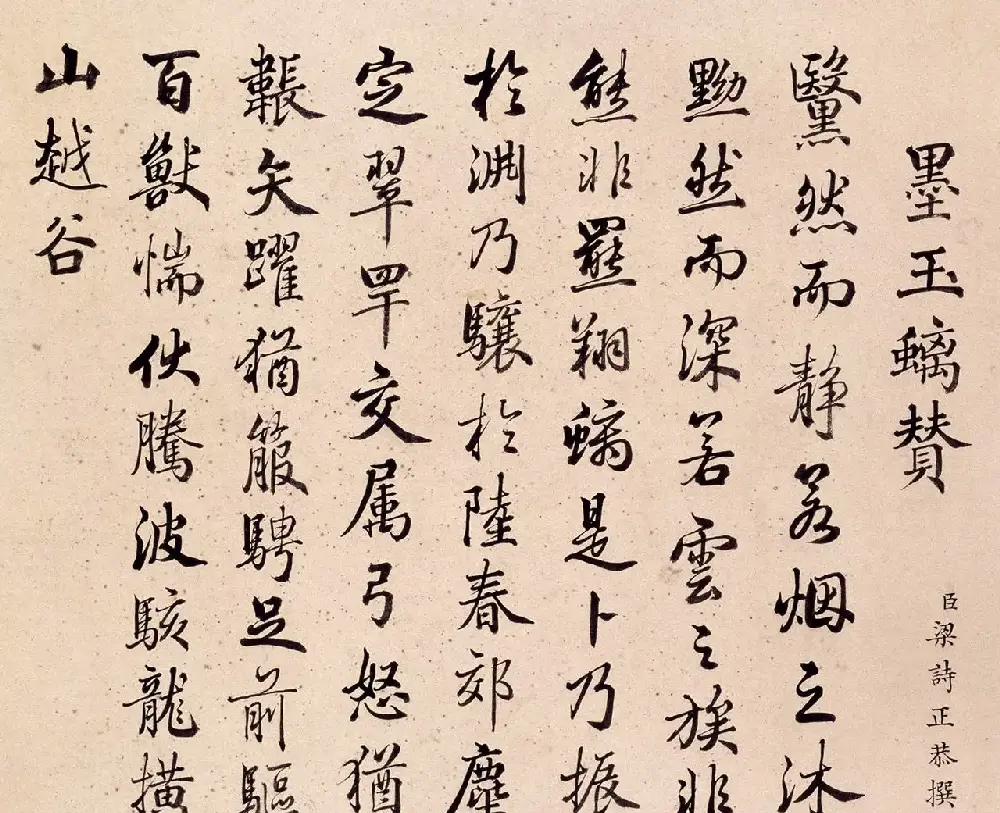 墨玉螭赞
臣梁詩正恭撰
黳然而静若烟之沐
黝然而深若雲之族非
熊非羆翔螭是卜乃振
於淵乃驤於陸春郊麈
定翠罕交属弓怒猶
韔矢躍猶箙騁足前驅
百獸惴伏騰波駭龍横
山越谷